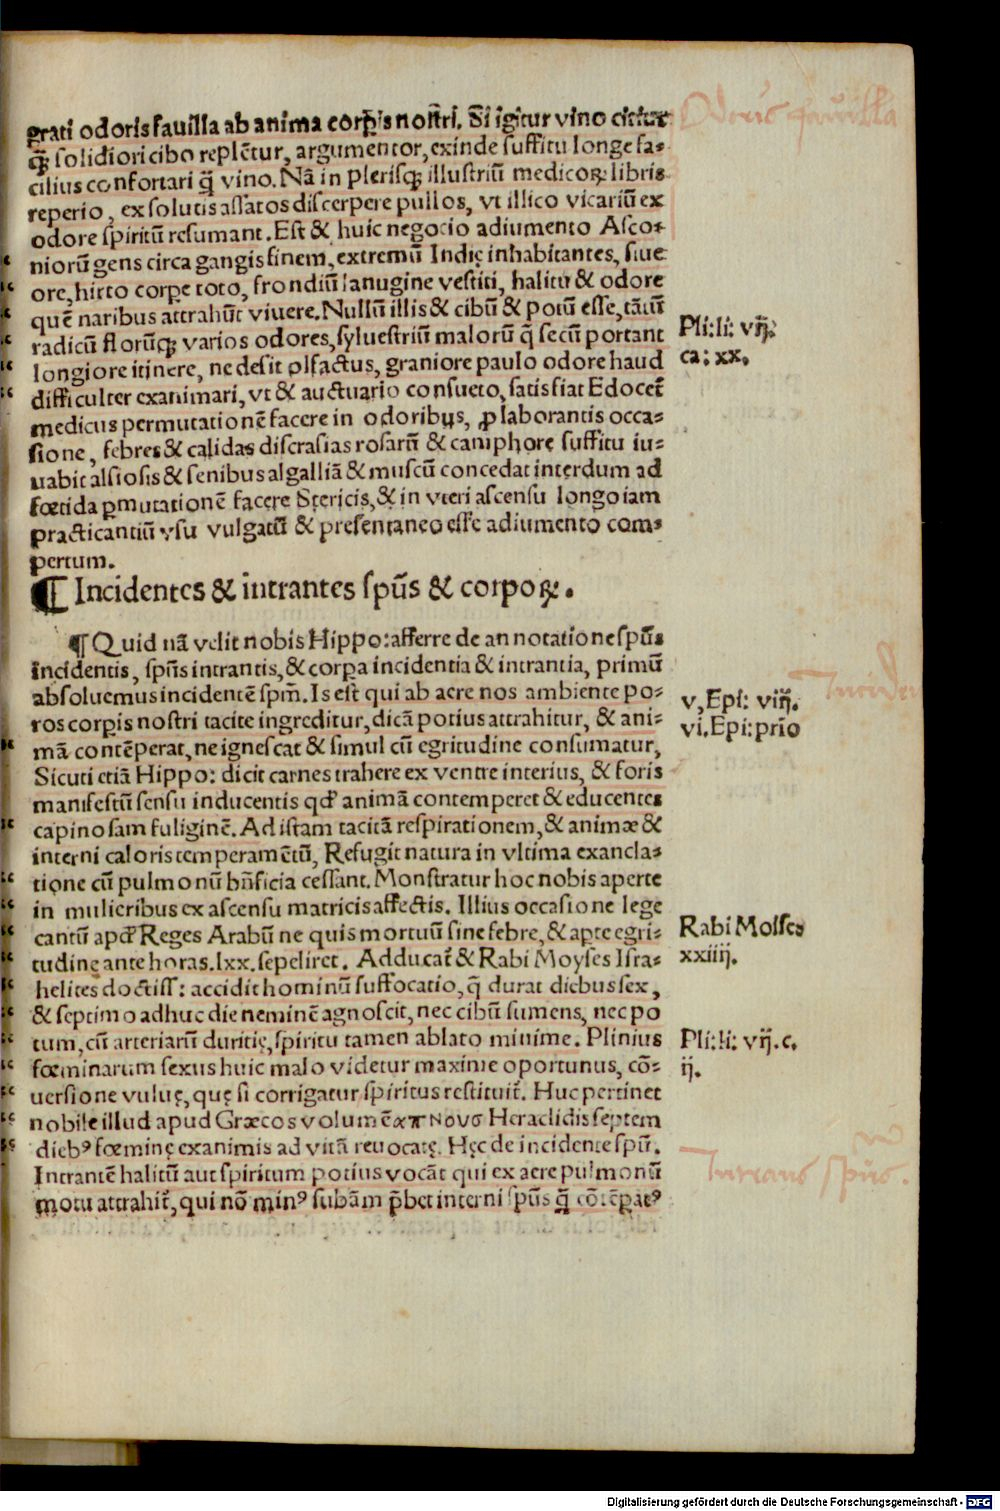 grati odoris fauilla ab anima corꝑis nostri. Si igitur vino citius
ꝙ̃ solidiori cibo replẽtur, argumentor, exinde suffitu longe fa-
cilius confortari q̃ vino. Nã in plerisqꝫ illustriũ medicoꝝ libris
reperio, ex solutis assatos discerpere pullos, vt illico vicariũ ex
odore spiritũ resumant. Est & huic negocio adiumento Asco-
niorũ gens circa gangis finem, extremũ Indię inhabitantes, siue
ore, hirto corpe toto, frondiũ lanugine vestiti, halitu & odore
quẽ naribus attrahũt viuere. Nullũ illis & cibũ & potũ esse, tãtũ
radicũ florũqꝫ varios odores, syluestriũ malorũ q̃ secũ portant
longiore itinere, ne desit olfactus, graniore paulo odore haud
difficulter exanimari, vt & auctuario consueto, satisfiat Edocet̃
medicus permutationẽ facere in odoribus, ꝓ laborantis occa-
sione, febres & calidas discrasias rosarũ & camphorę suffitu iu-
uabit alsiosis & senibus algalliã & muscũ concedat interdum ad
fœtida ꝑmutationẽ facere Stericis, & in vteri ascensu longo iam
practicantiũ vsu vulgatũ & presentaneo esse adiumento com-
pertum.
¶ Incidentes & intrantes spũs & corpoꝝ.
¶ Quid nã velit nobis Hippo: afferre de annotatione spũs
incidentis, spũs intrantis, & corpa incidentia & intrantia, primũ
absoluemus incidentẽ spm̃. Is est qui ab aere nos ambiente po-
ros corꝑis nostri tacite ingreditur, dicã potius attrahitur, & ani-
mã contẽperat, ne ignescat & simul cũ egritudine consumatur,
Sicuti etiã Hippo: dicit carnes trahere ex ventre interius, & foris
manifestũ sensu inducentis qđ animã contemperet & educentes
capinosam fuliginẽ. Ad istam tacitã respirationem, & animæ &
interni caloris temperamẽtũ, Refugit natura in vltima exancla-
tione cũ pulmonũ bñficia cessant. Monstratur hoc nobis aperte
in mulieribus ex ascensu matricis affectis. Illius occasione lege
cantũ apđ Reges Arabũ ne quis mortuũ sine febre, & apte egri-
tudine ante horas. lxx. sepeliret. Adducat̃ & Rabi Moyses Isra-
helites doctiss: accidit hominũ suffocatio, q̃ durat diebus sex,
& septimo adhuc die neminẽ agnoscit, nec cibũ sumens, nec po
tum, cũ arteriarũ duritię, spiritu tamen ablato minime. Plinius
fœminarum sexus huic malo videtur maxime oportunus, cõ-
uersione vuluę, quę si corrigatur spiritus restituit̃. Huc pertinet
nobile illud apud Græcos volumẽ απνουσ Heraclidis septem
diebꝰ fœminę exanimis ad vitã reuocatę. Hęc de incidente spũ.
Intrantẽ halitũ aut spiritum potius vocãt qui ex aere pulmonũ
motu attrahit̃, qui nõ minꝰ subãm p̃bet interni spũs q̃ cõtẽꝑatꝰ
Odoris fauilla
Pli: li: vij.
ca: xx.
v, Epi: viij.
vi. Epi: prio
Rabi Moises
xxiiij.
Pli: li: vij. c.
ij.
Intrans spũs.
Digitalisierung gefördert durch die Deutsche Forschungsgemeinschaft - DFG